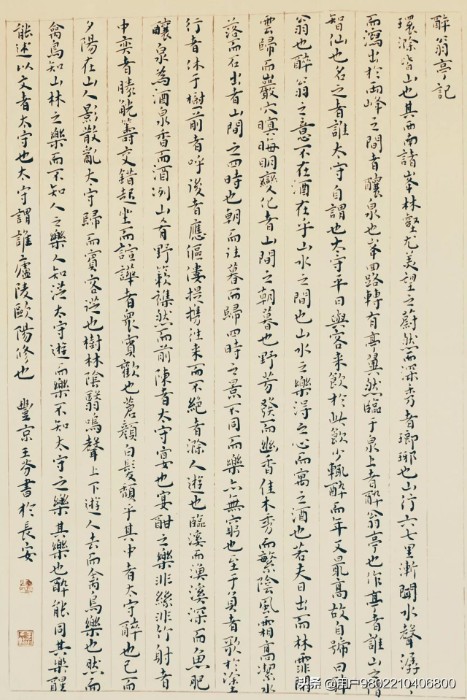 醉翁亭記
環滁皆山也其西南諸峯林壑尤美望之蔚然而深秀者瑯琊也山行六七里漸聞水聲潺潺
而瀉出於兩峰之間者釀泉也峯回路轉有亭翼然臨于泉上者醉翁亭也作亭者誰山之
智仙也名之者誰太守自謂也太守平日與客來飲於此飲少輒醉而年又最高故自號曰
翁也醉翁之意不在酒在乎山水之間也山水之樂得之心而寓之酒也若夫日出而林霏
雲歸而巖穴暝晦明變化者山間之朝暮也野芳發而幽香佳木秀而繁陰風霜高潔水
落而石出者山間之四時也朝而往暮而歸四時之景不同而樂亦無窮也至于負者歌於塗
行者休于樹前者呼後者應傴僂提攜往來而不絕者滁人遊也臨溪而漁溪深而魚肥
釀泉為酒泉香而酒冽山肴野蔌雜然而前陳者太守宴也宴酣之樂非絲非竹射者
中奕者勝觥籌交錯起坐而諠譁者眾賓歡也蒼顏白髮頹乎其中者太守醉也已而
夕陽在山人影散亂太守歸而賓客從也樹林陰翳鳴聲上下遊人去而禽鳥樂也然而
禽鳥知山林之樂而不知人之樂人知從太守遊而樂不知太守之樂其樂也醉能同其樂醒
能述以文者太守也太守謂誰廬陵歐陽修也 豐京王 書於長安
头条 @用户9802210406800